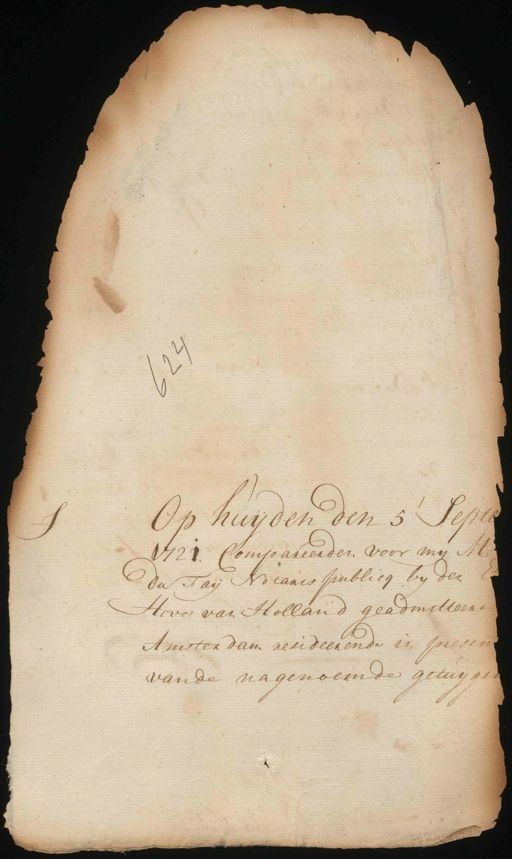 624
S Op huijden den 5 Septe
1721. Compareerden voor my M
Du Taij Notaris publicq by den E
Hove van Holland geadmitteer
Amsterdam resideerende in presen
vande nagenoemde getuijgen